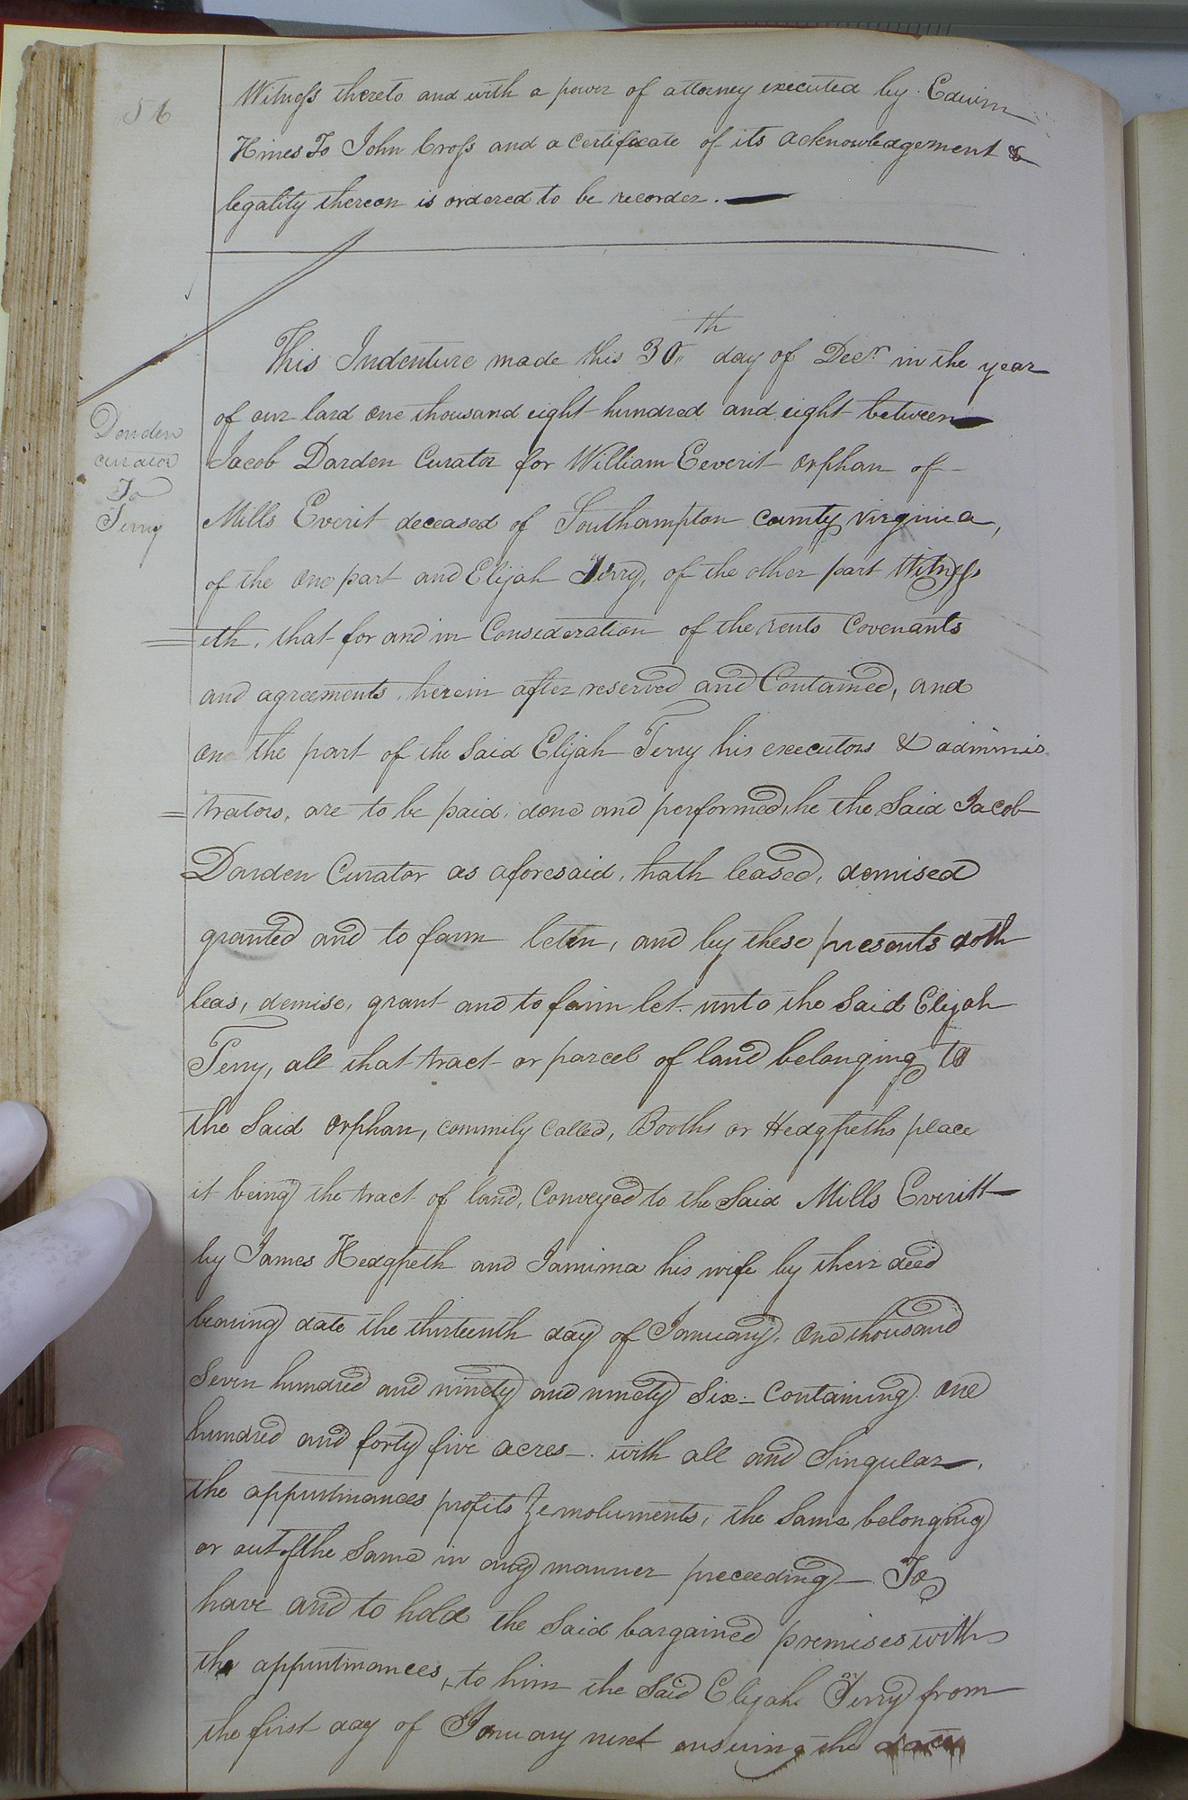 56
Witness thereto and with a power of attorney executed by Edwin
Hines To John Cross and a certificate of its acknowledgement &
legality thereon is ordered to be recorder.
This Indenture made this 30th day of Decr in the year
of our lard one thousand eight hundred and eight between
Darden
curator
To
Terry
Jacob Darden Curator for William Eeverit orphan of
Mills Everit deceased of Southampton county virginia,
of the one part and Elijah Terry, of the other part Witness
=eth, that for and in Consideration of the rents Covenants
and agreements herein after reserved and Contained, and
on the part of the said Elijah Terry his executors & adminis
=trators, are to be paid, done and performed, he the Said Jacob
Darden Curator as aforesaid, hath leased, demised
granted and to farm leten, and by these presents doth
leas, demise, grant and to farm let unto the said Elijah
Terry, all that tract or parcel of land belonging to
the Said orphan, commily called, Booths or Hedgpeths place
it being the tract of land, Conveyed to the Said Mills Everitt
by James Hedgpeth and Jamima his wife by their deed
bearing date the thirteenth day of January, One thousand
Seven hundred and ninety and ninety Six - Containing one
hundred and forty five acres - with all and Singular,
the appurtinances profits & emoluments, the same belonging
or out of the Same in any manner preceeding - To
have and to hold the Said bargained premises with
the appurtinances, to him the Said Elijah Terry from
the first day of January next ensuing the date